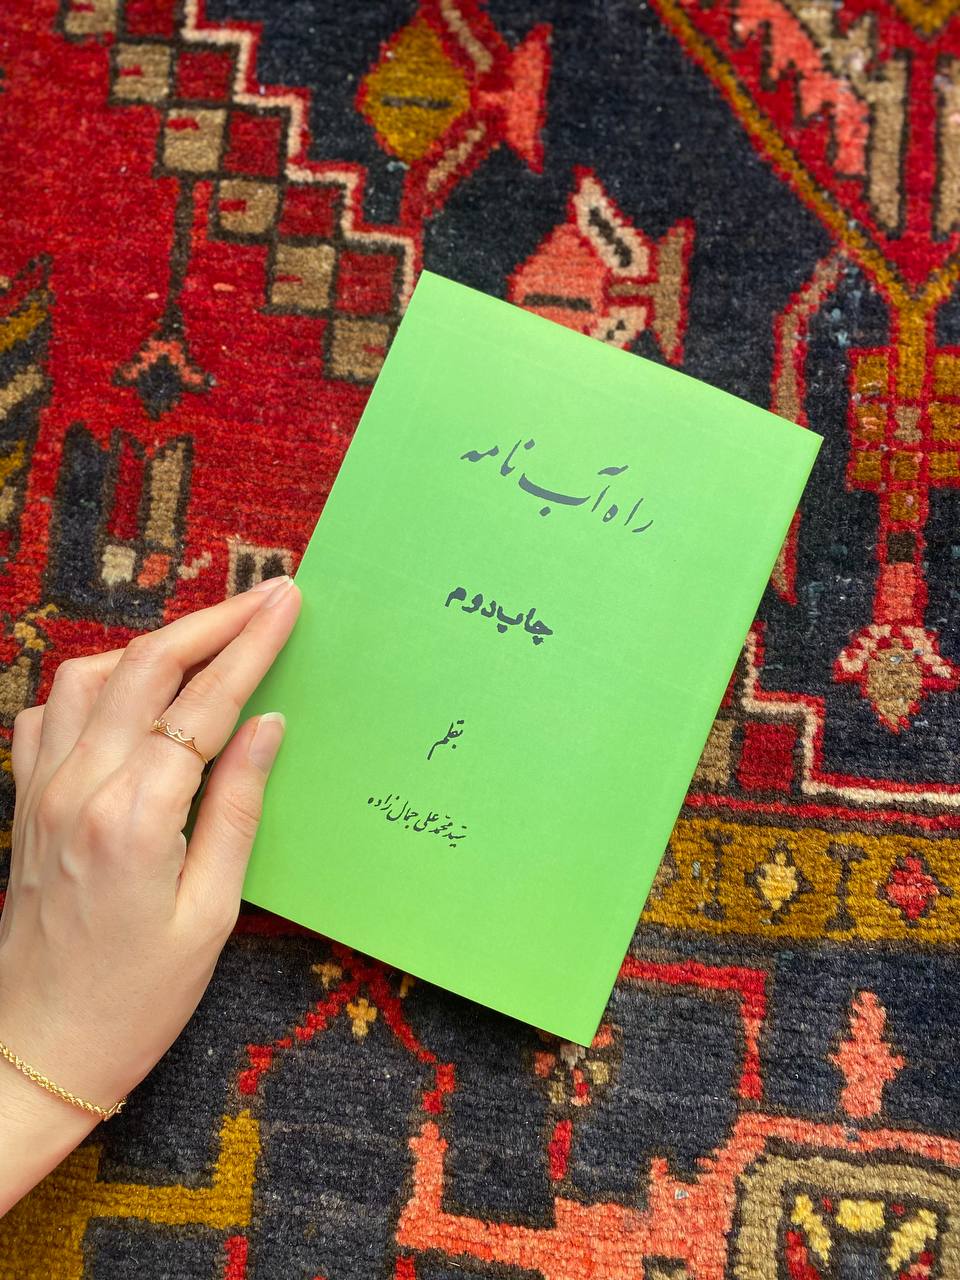 راه آب نامه
چاپ دوم
بقلم
سیّد محمّد علی جمال زاده